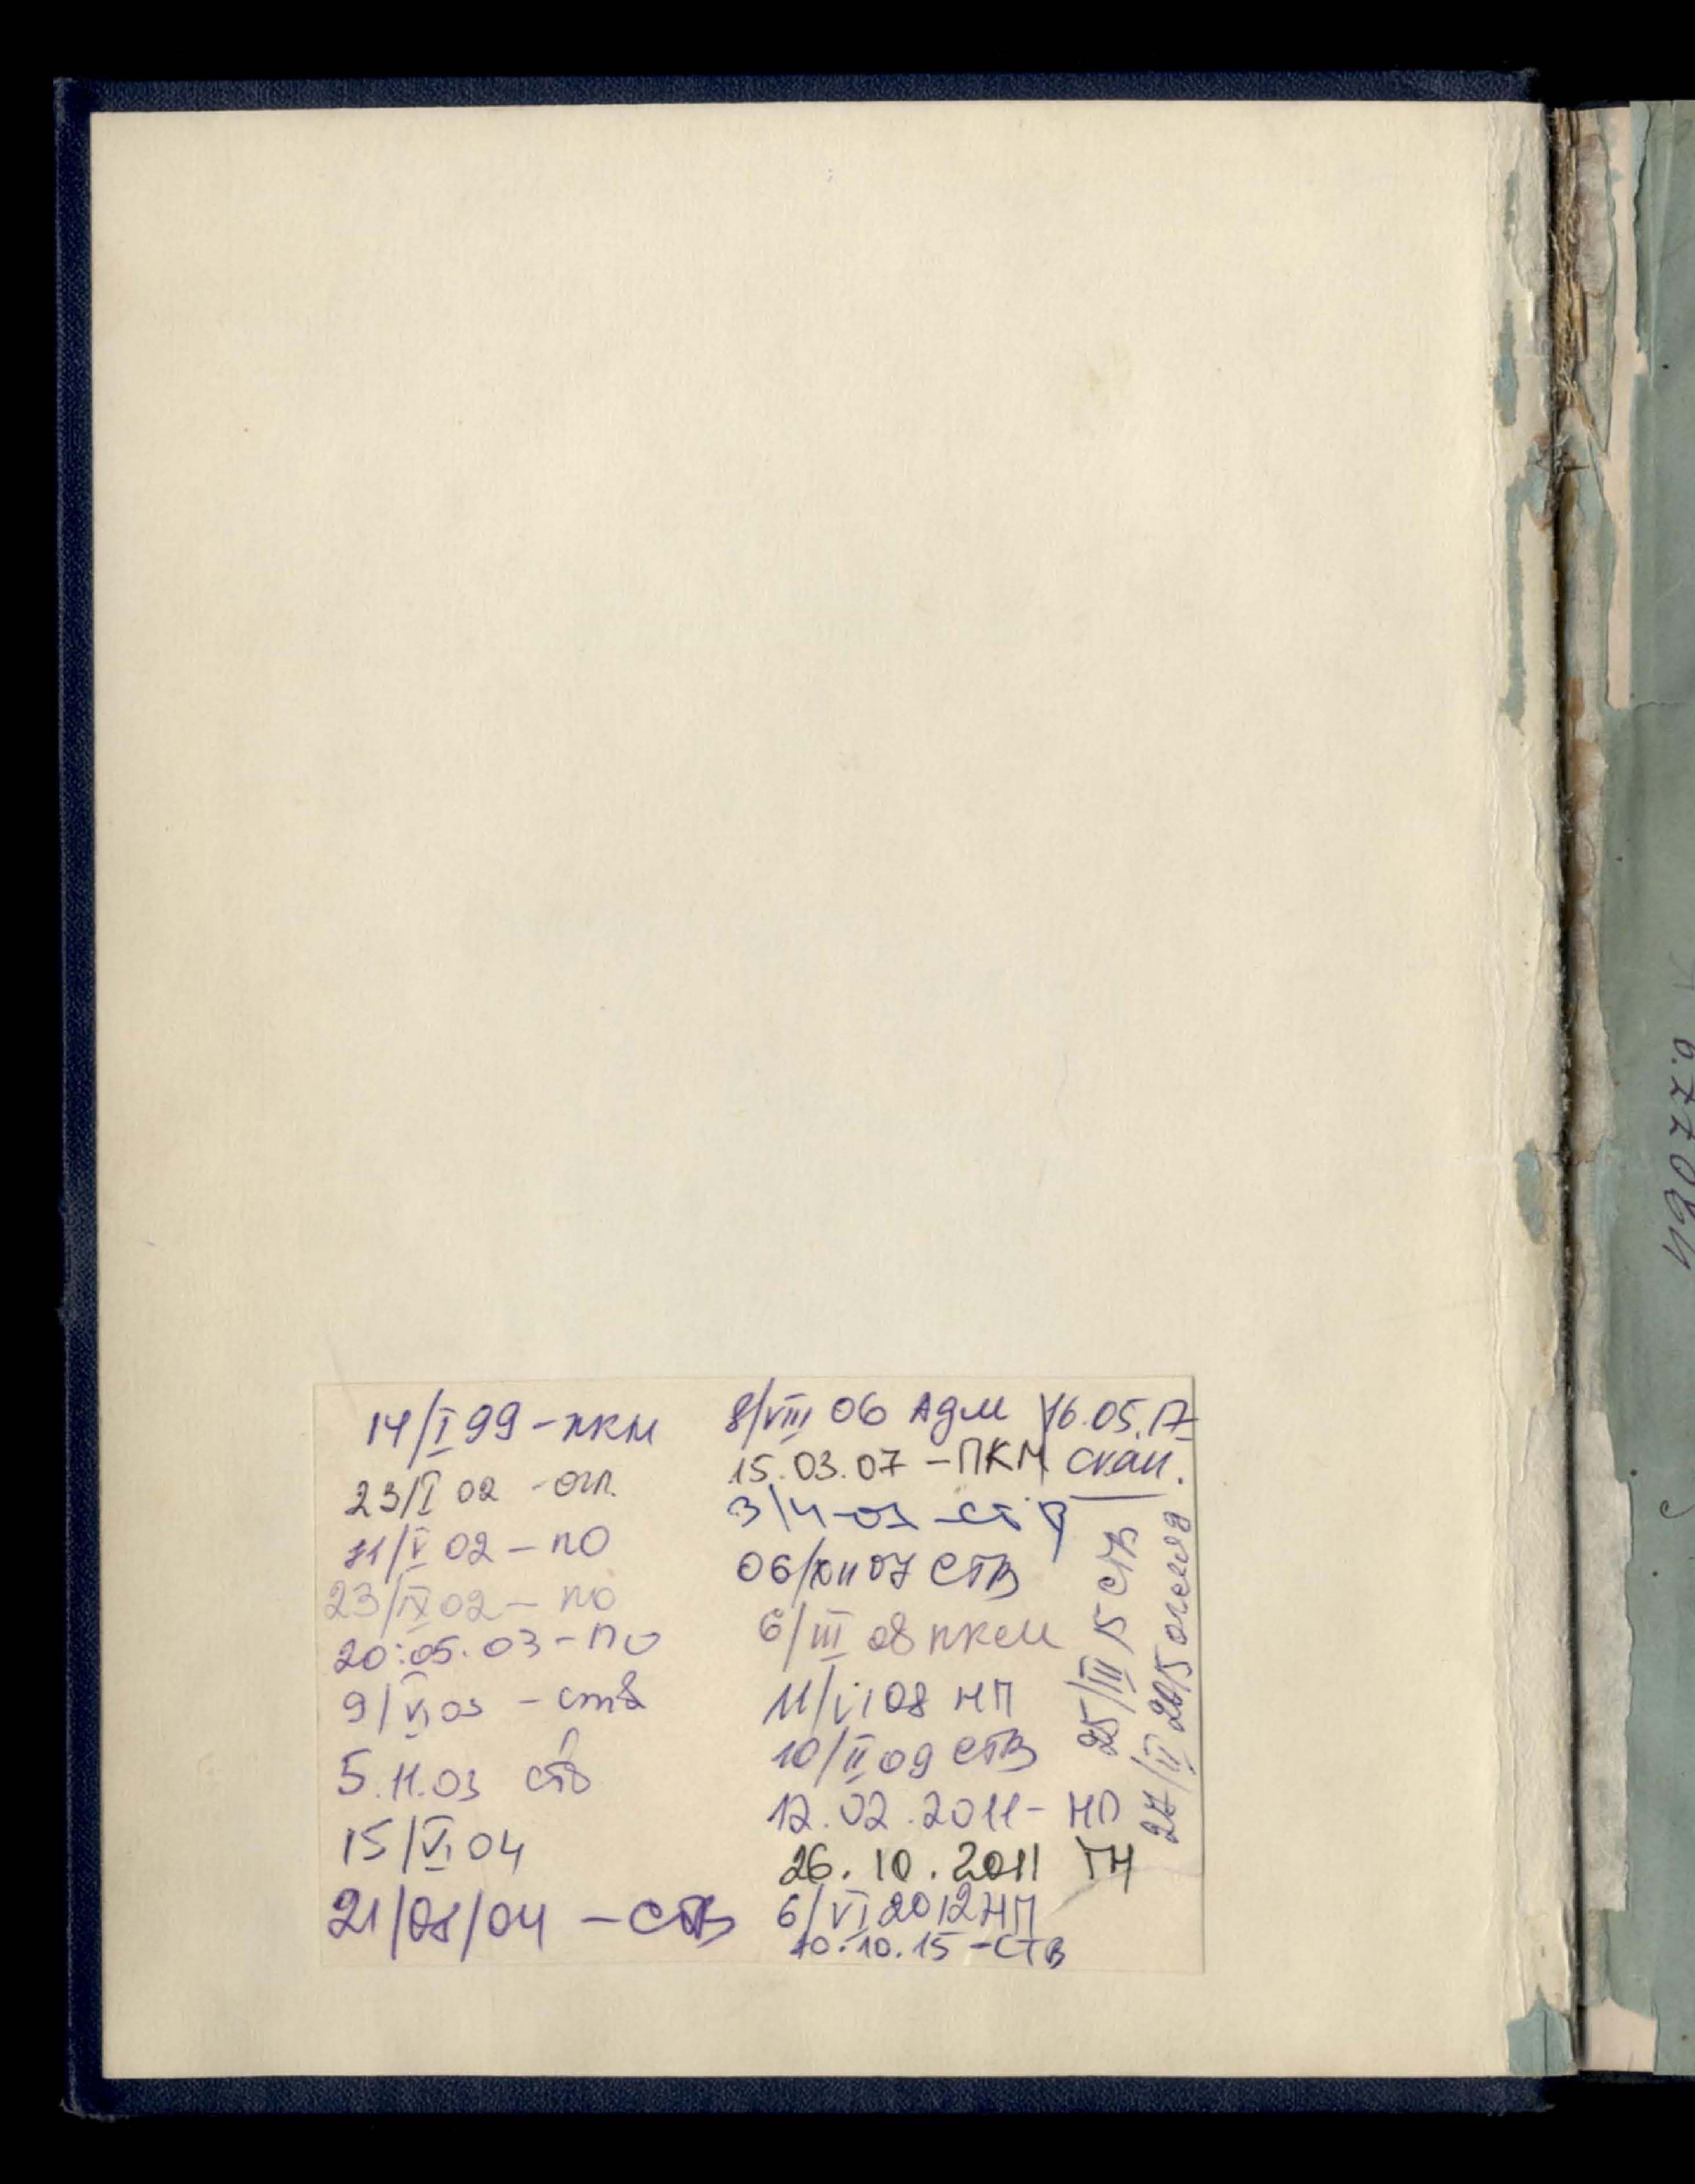 14/I 99 - пкм
23/I 02 - огл.
11/V 02 - по
23/IX 02 - по
20.05.03 - по
9/VI 03 - ств
5.11.03 ств
15/VI 04
21/08/04 - СТВ
8/VIII 06 Адм
15.03.07 - ПКМ
06/XII 07 СТВ
6/III 08 пкм
11/VI 08 НП
10/II 09 СТВ
12.02.2011 - НП
26.10.2011 ТН
6/VI 2012 НП
10.10.15 - СТВ
16.05.17
скан.
25/III 15 СТВ
27/II 2015